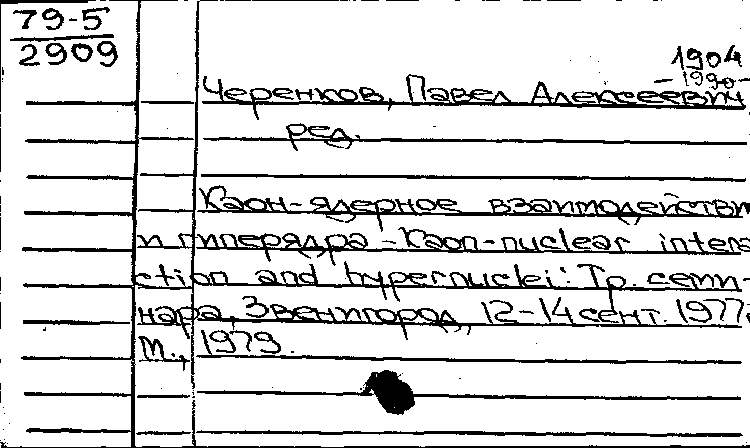 79-5
2909
1904
-1990-
Черенков, Павел Алексеевич
ред.
Каон-ядерное взаимодействи
и гиперядра - Kaon-nuclear intera
ction and hypernuclei: Тр. семи-
нара, Звенигород, 12-14 сент. 1977г.
М., 1979.